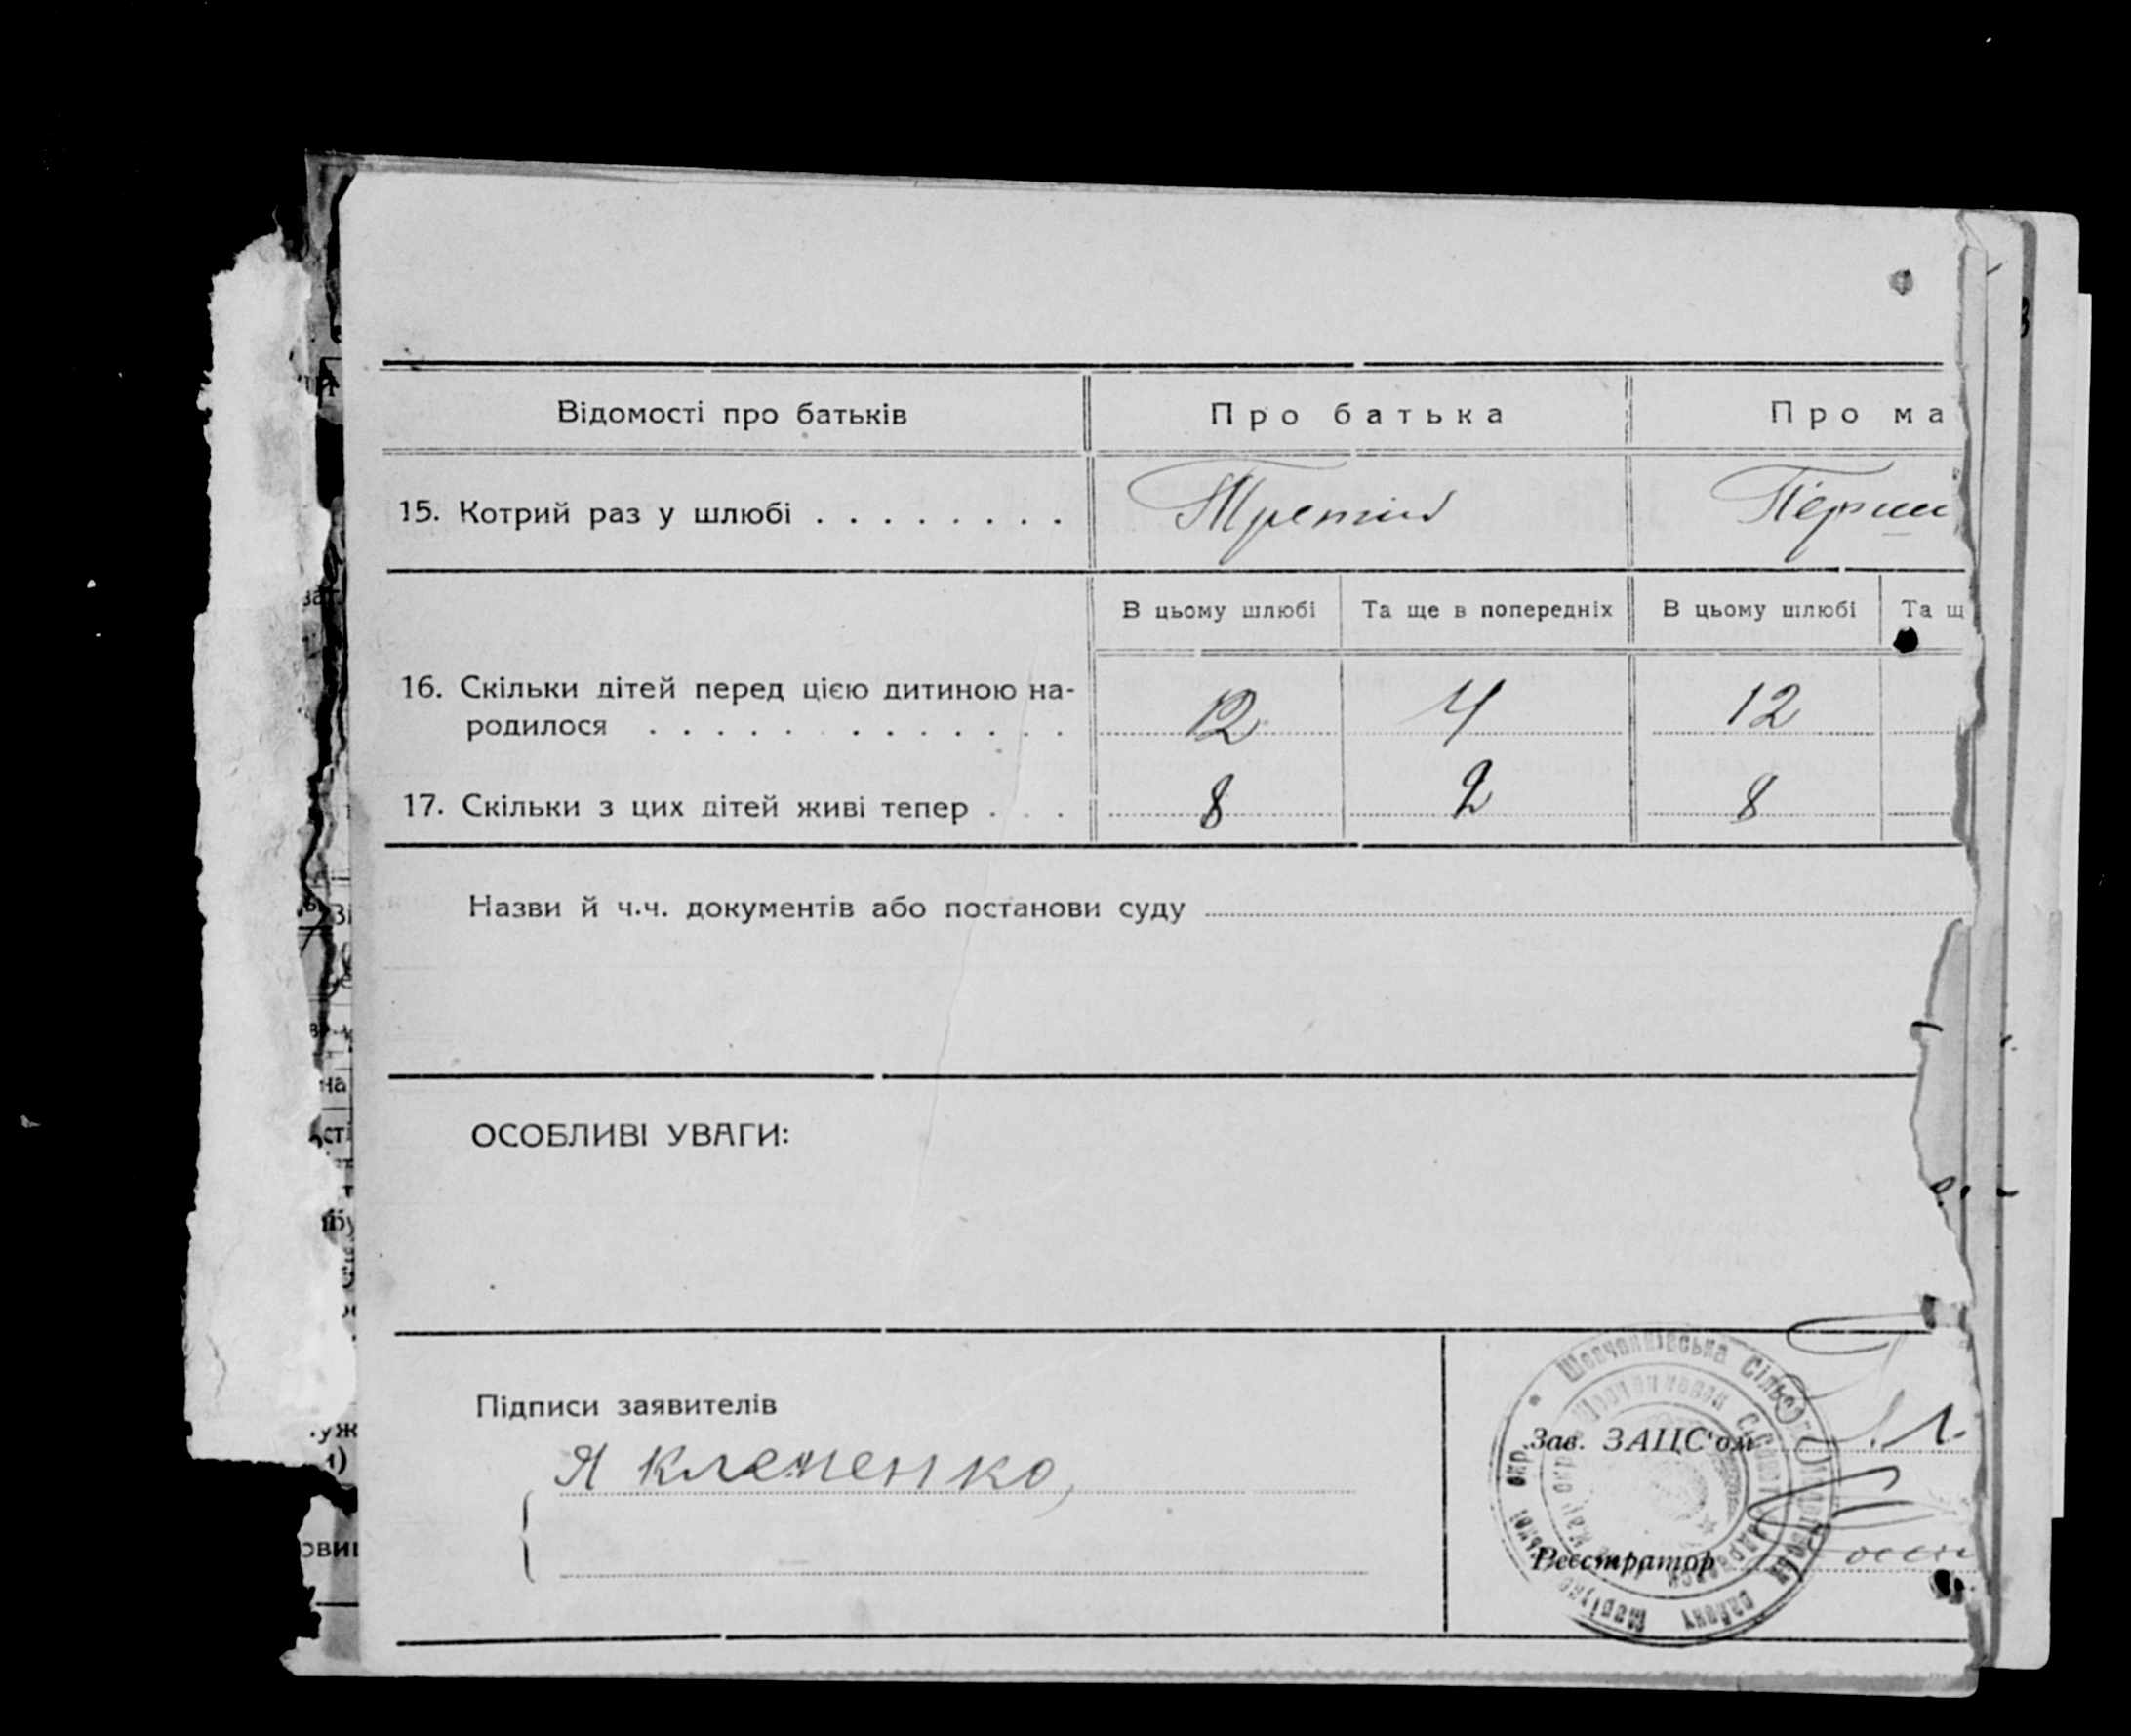 Відомості про батьків
Про батька
Про ма
15. Котрий раз у шлюбі . . . . . . . .
Третій
Перши
В цьому шлюбі
Та ще в попередніх
В цьому шлюбі
Та щ
16. Скільки дітей перед цією дитиною на-
родилося . . . . . . . . . . . . .
12
4
12
17. Скільки з цих дітей живі тепер . . .
8
2
8
Назви й ч.ч. документів або постанови суду
ОСОБЛИВІ УВАГИ:
Підписи заявителів
Я Клеменко
Шевченківська Сільсь
Зав. ЗАЦС'ом
Реєстратор
району
окр.